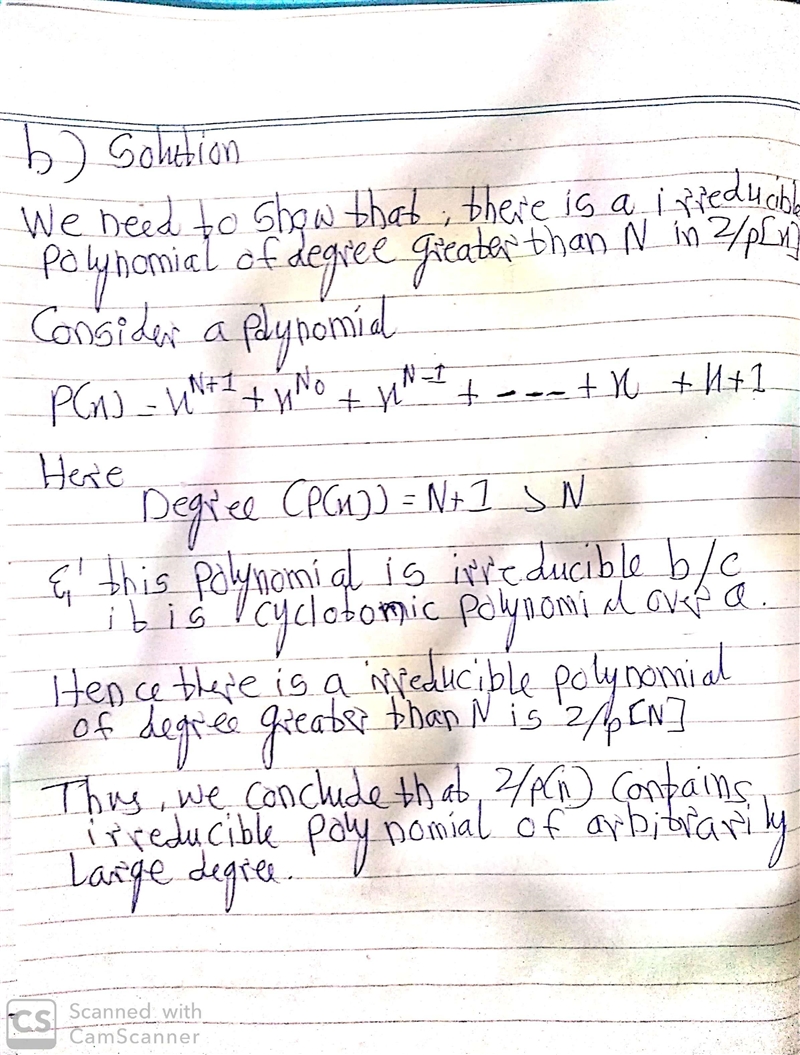 b) Solution
We need to show that, there is a irreducible
polynomial of degree greater than N in Z/p[x]
Consider a polynomial
P(x) = x^{N+1} + x^{N0} + x^{N-1} + ---- + x + x+1
Here
Degree (P(x)) = N+1 > N
&' this polynomial is irreducible b/c
it is cyclotomic polynomial over Q.
Hence there is a irreducible polynomial
of degree greater than N is Z/p[N]
Thus, we conclude that, Z/p(x) contains
irreducible polynomial of arbitrarily
Large degree.
CS Scanned with
CamScanner